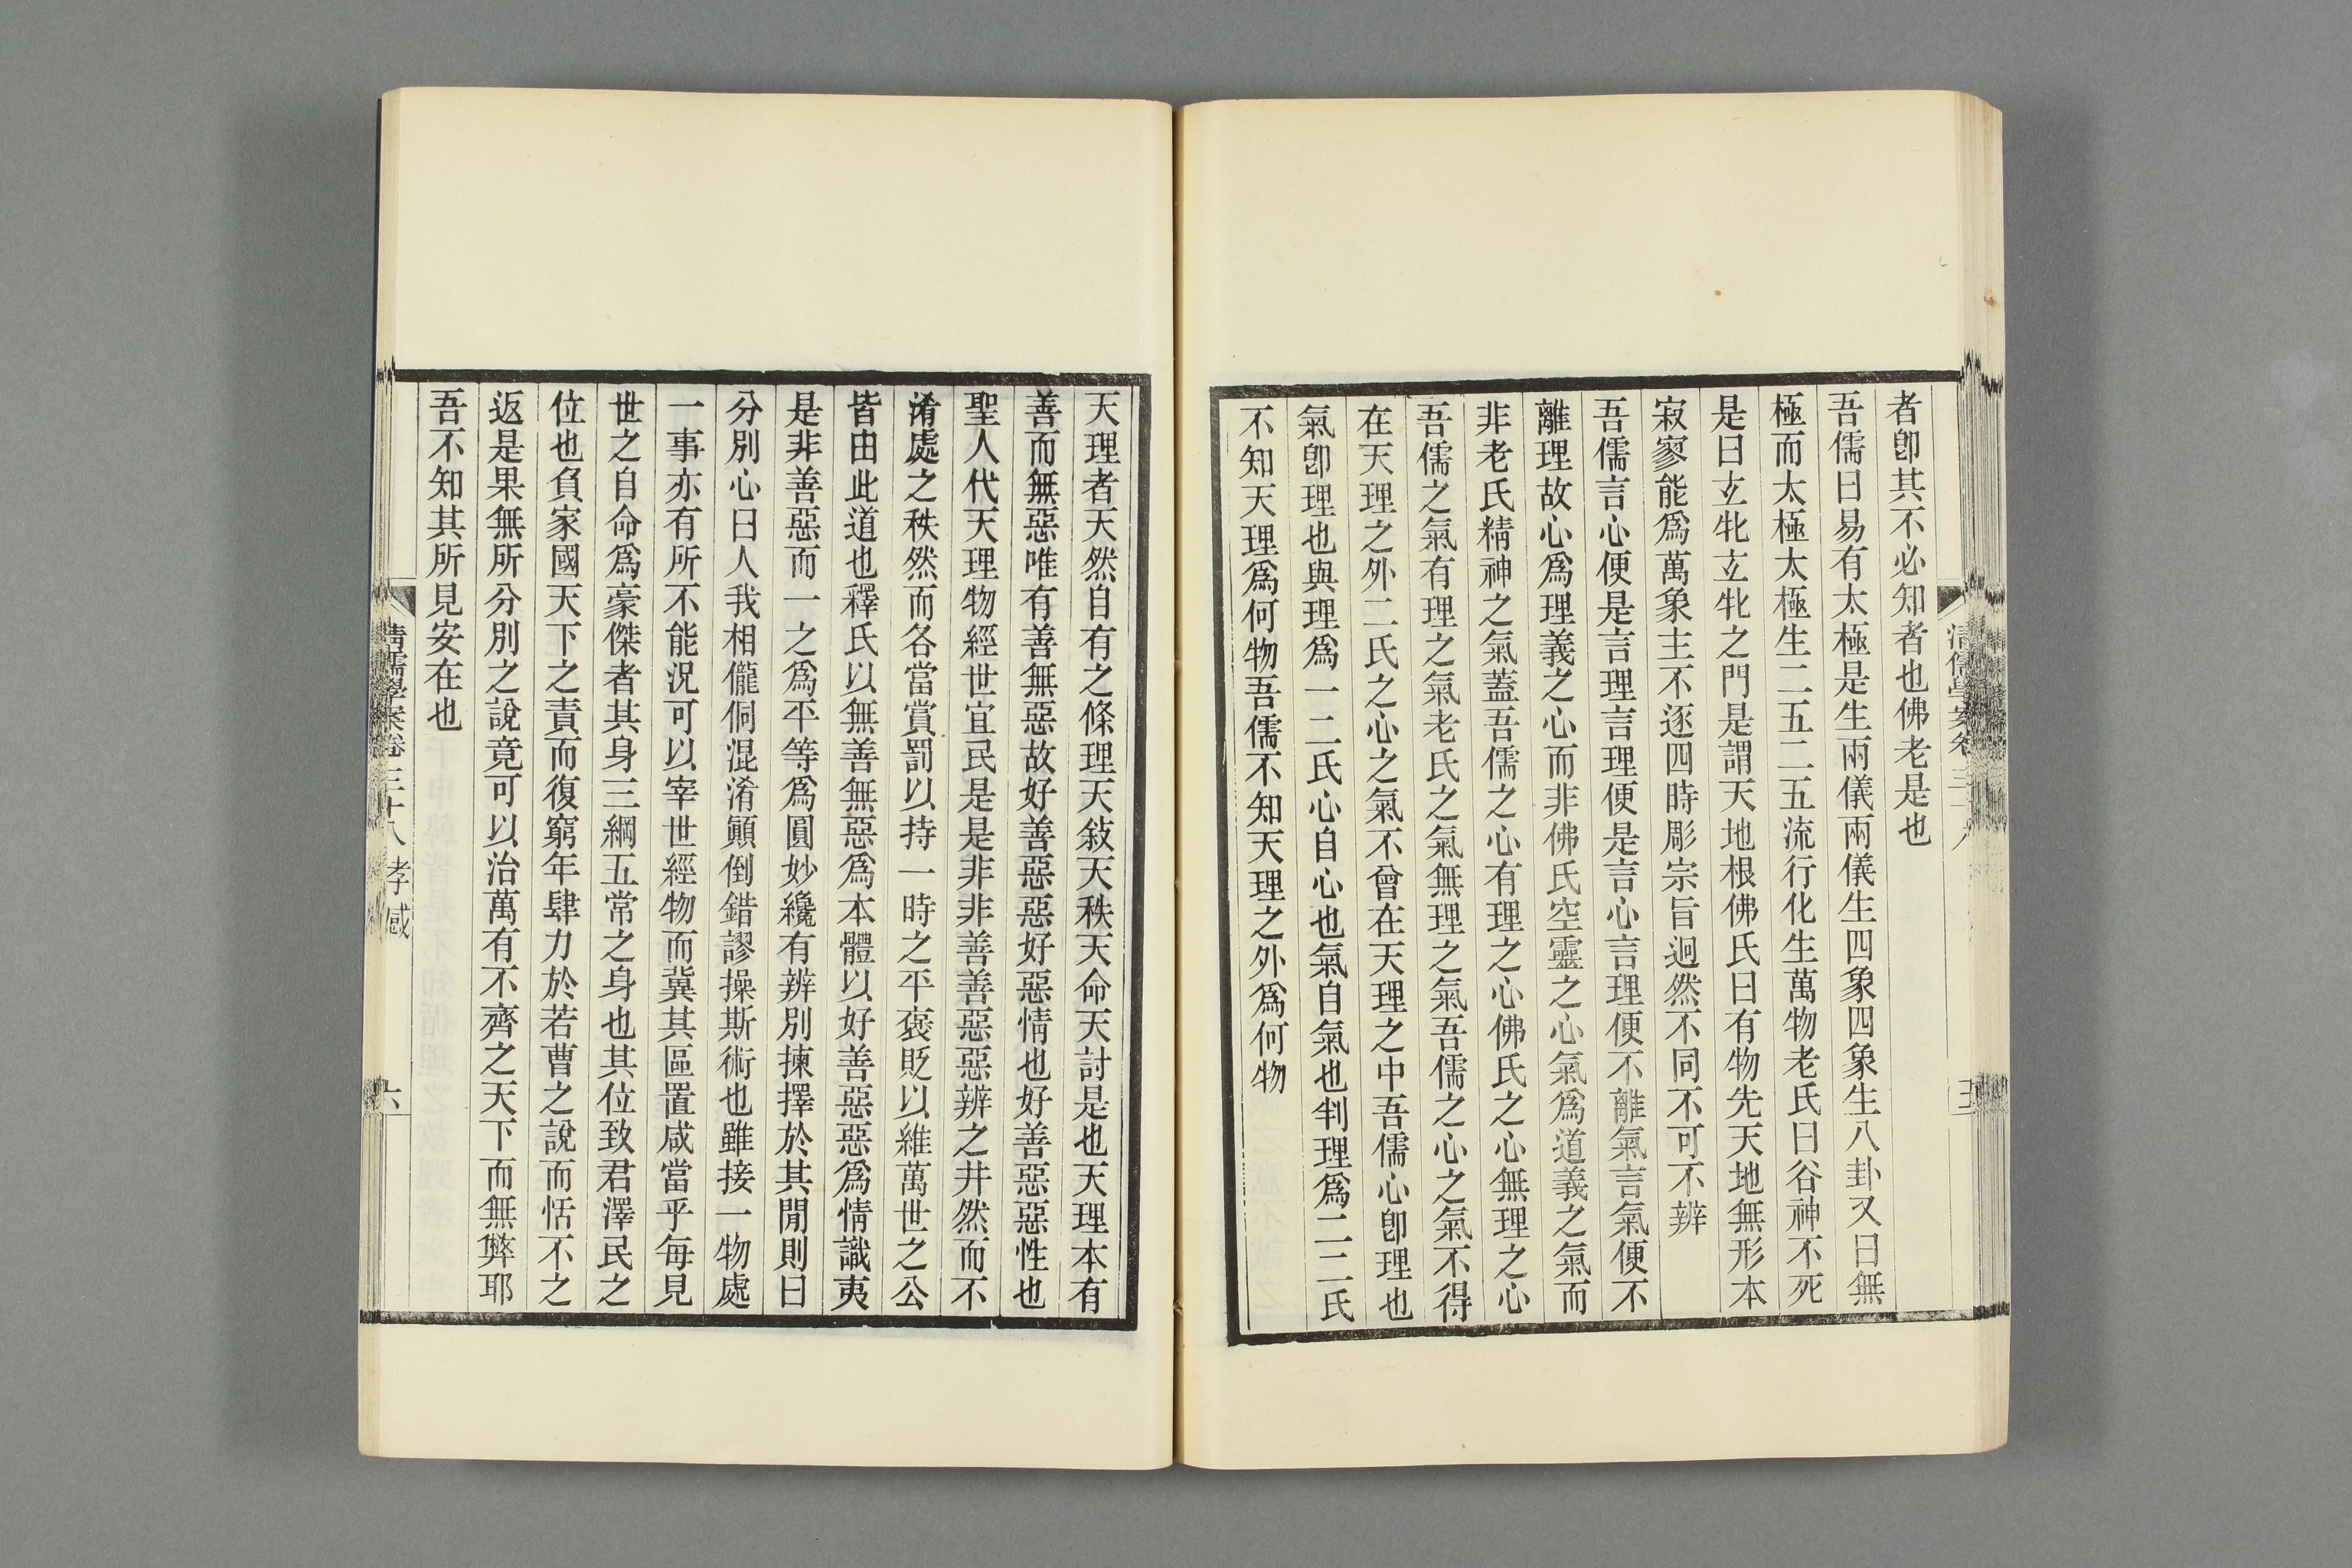 者卽其不必知者也佛老是也
吾儒曰易有太極是生兩儀兩儀生四象四象生八卦又曰無
極而太極太極生二五二五流行化生萬物老氏曰谷神不死
是曰玄牝玄牝之門是謂天地根佛氏曰有物先天地無形本
寂寥能爲萬象主不逐四時彫宗旨迥然不同不可不辨
吾儒言心便是言理言理便是言心言理便不離氣言氣便不
離理故心爲理義之心而非佛氏空靈之心氣爲道義之氣而
非老氏精神之氣蓋吾儒之心有理之心佛氏之心無理之心
吾儒之氣有理之氣老氏之氣無理之氣吾儒之心之氣不得
在天理之外二氏之心之氣不曾在天理之中吾儒心卽理也
氣卽理也與理爲一二氏心自心也氣自氣也判理爲二二氏
不知天理爲何物吾儒不知天理之外爲何物
清儒學案卷三十八
五
天理者天然自有之條理天敍天秩天命天討是也天理本有
善而無惡唯有善無惡故好善惡惡好惡情也好善惡惡性也
聖人代天理物經世宜民是是非非善善惡惡辨之井然而不
淆處之秩然而各當賞罰以持一時之平褒貶以維萬世之公
皆由此道也釋氏以無善無惡爲本體以好善惡惡爲情識夷
是非善惡而一之爲平等爲圓妙纔有辨別揀擇於其閒則曰
分別心曰人我相儱侗混淆顚倒錯謬操斯術也雖接一物處
一事亦有所不能況可以宰世經物而冀其區置咸當乎每見
世之自命爲豪傑者其身三綱五常之身也其位致君澤民之
位也負家國天下之責而復窮年肆力於若曹之說而恬不之
返是果無所分別之說竟可以治萬有不齊之天下而無弊耶
吾不知其所見安在也
清儒學案卷三十八 孝感
六